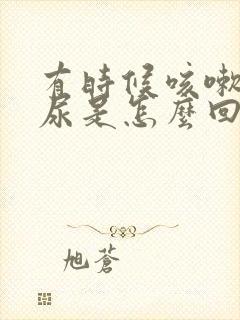 有時候咳嗽
尿是怎麼回
旭蒼